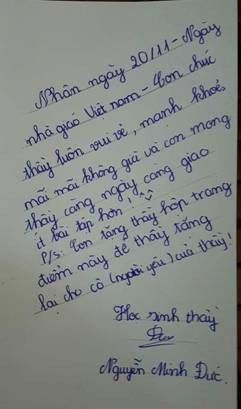 Nhân ngày 20/11 - Ngày
nhà giáo Việt nam - Con chúc
thầy luôn vui vẻ, mạnh khoẻ,
mãi mãi không già và con mong
thầy càng ngày càng giao
ít bài tập hơn! ^^
P/s: Con tặng thầy hộp trang
điểm này để thầy tặng
lại cho cô (người yêu) của thầy!
Học sinh thầy
Nguyễn Minh Đức.